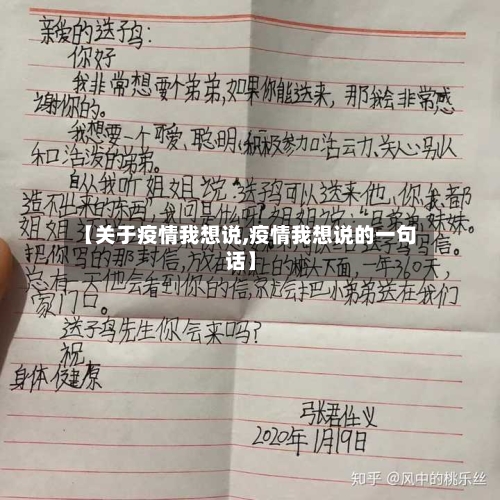 亲爱的送子鸟:
你好
我非常想要个弟弟,如果你能送来,那我会非常感
谢你的。
我想要一个可爱、聪明、积极参加活动、关心别人
和活泼的弟弟。
自从我听姐姐说:送子鸟可以送来他、你、我都
造不出来的东西,我问是
姐姐 妹妹。
【关于疫情我想说,疫情我想说的一句
话】
把你写的那封信,放在 下面,一年360天,
总有一天他会看到你的信,就会把小弟弟送在我们
家门口。
送子鸟先生你会来吗?
祝
身体健康
张君任义
2020年1月19日
知乎 @风中的桃乐丝